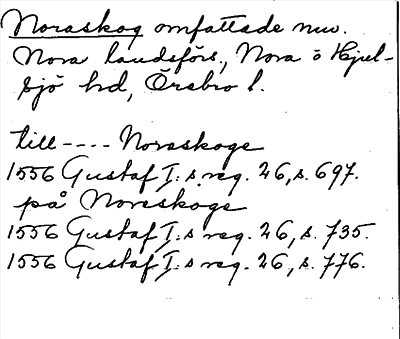 Noraskog omfattade nuv.
Nora landsförs., Nora o Hjul-
sjö hd, Örebro l.
till ---- Noraskoge
1556 Gustaf I:s reg. 26, s. 697.
på Noreskoge
1556 Gustaf I:s reg. 26, s. 735.
1556 Gustaf I:s reg. 26, s. 776.